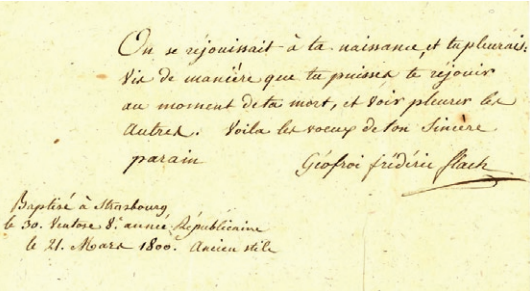 On se réjouissait à ta naissance, et tu pleurais:
Vis de manière que tu puisses te réjouir
au moment de ta mort, et voir pleurer les
autres. Voila les voeux de ton Sincère
parain Géofroi frédéric
Baptisé à Strasbourg
le 30. Ventose 8.e année Républicaine
le 21. Mars 1800. Ancien stile